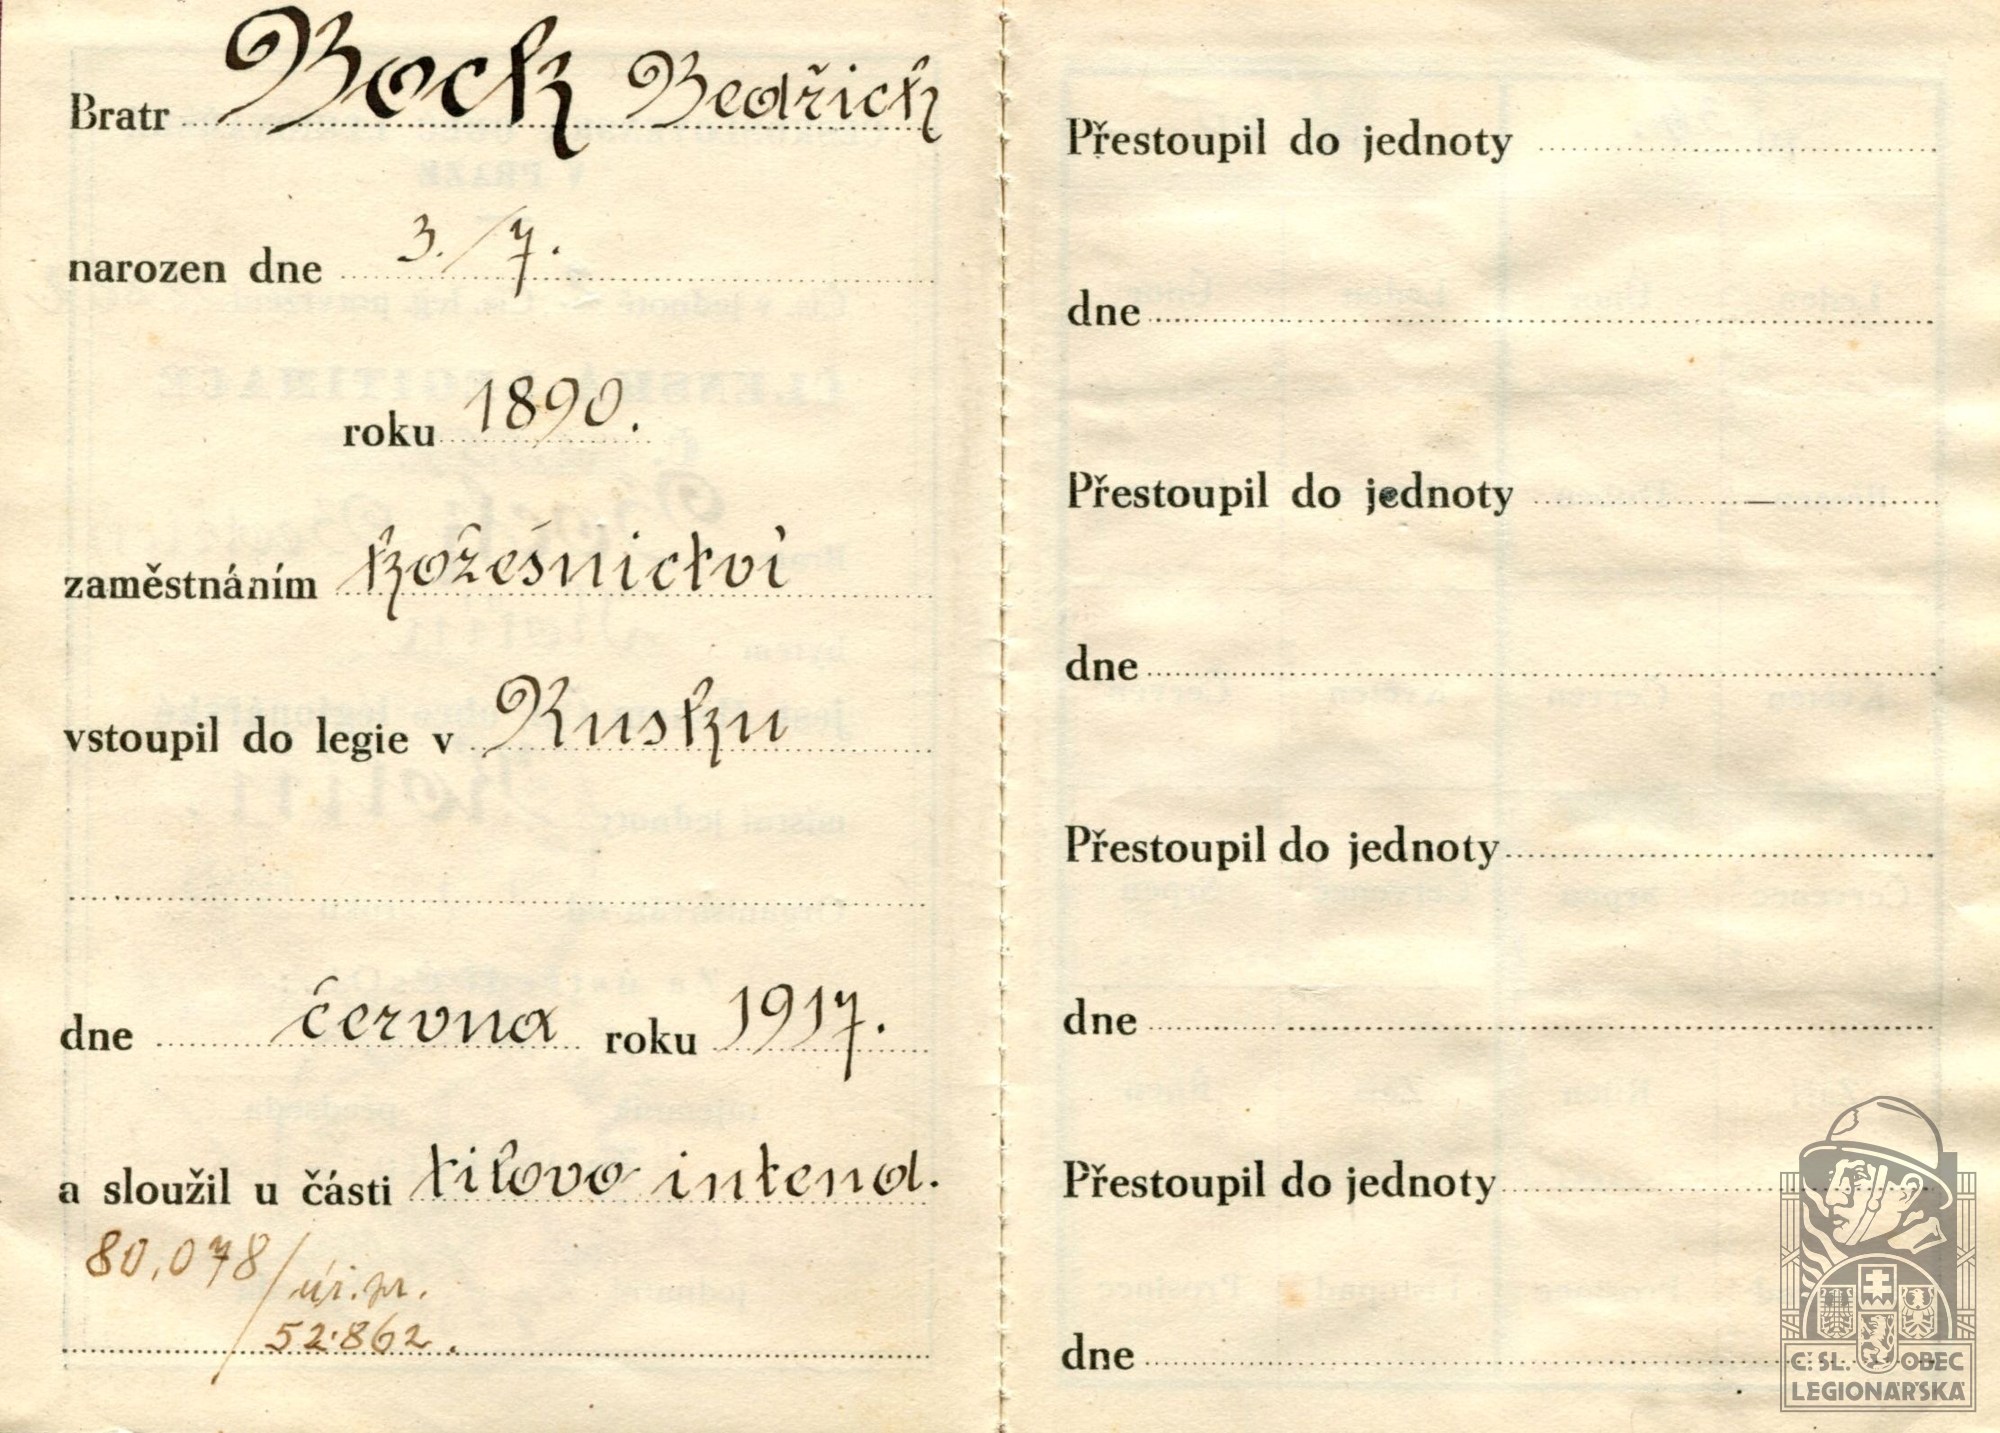 Bratr Bock Bedřich
narozen dne 3./7.
roku 1890.
zaměstnáním kožešnictví
vstoupil do legie v Rusku
dne června roku 1917.
a sloužil u části tilovo intend.
80,078/úř.pr.
52.862.
Přestoupil do jednoty
dne
Přestoupil do jednoty
dne
Přestoupil do jednoty
dne
Přestoupil do jednoty
dne
Č. SL. OBEC
LEGIONÁŘSKÁ